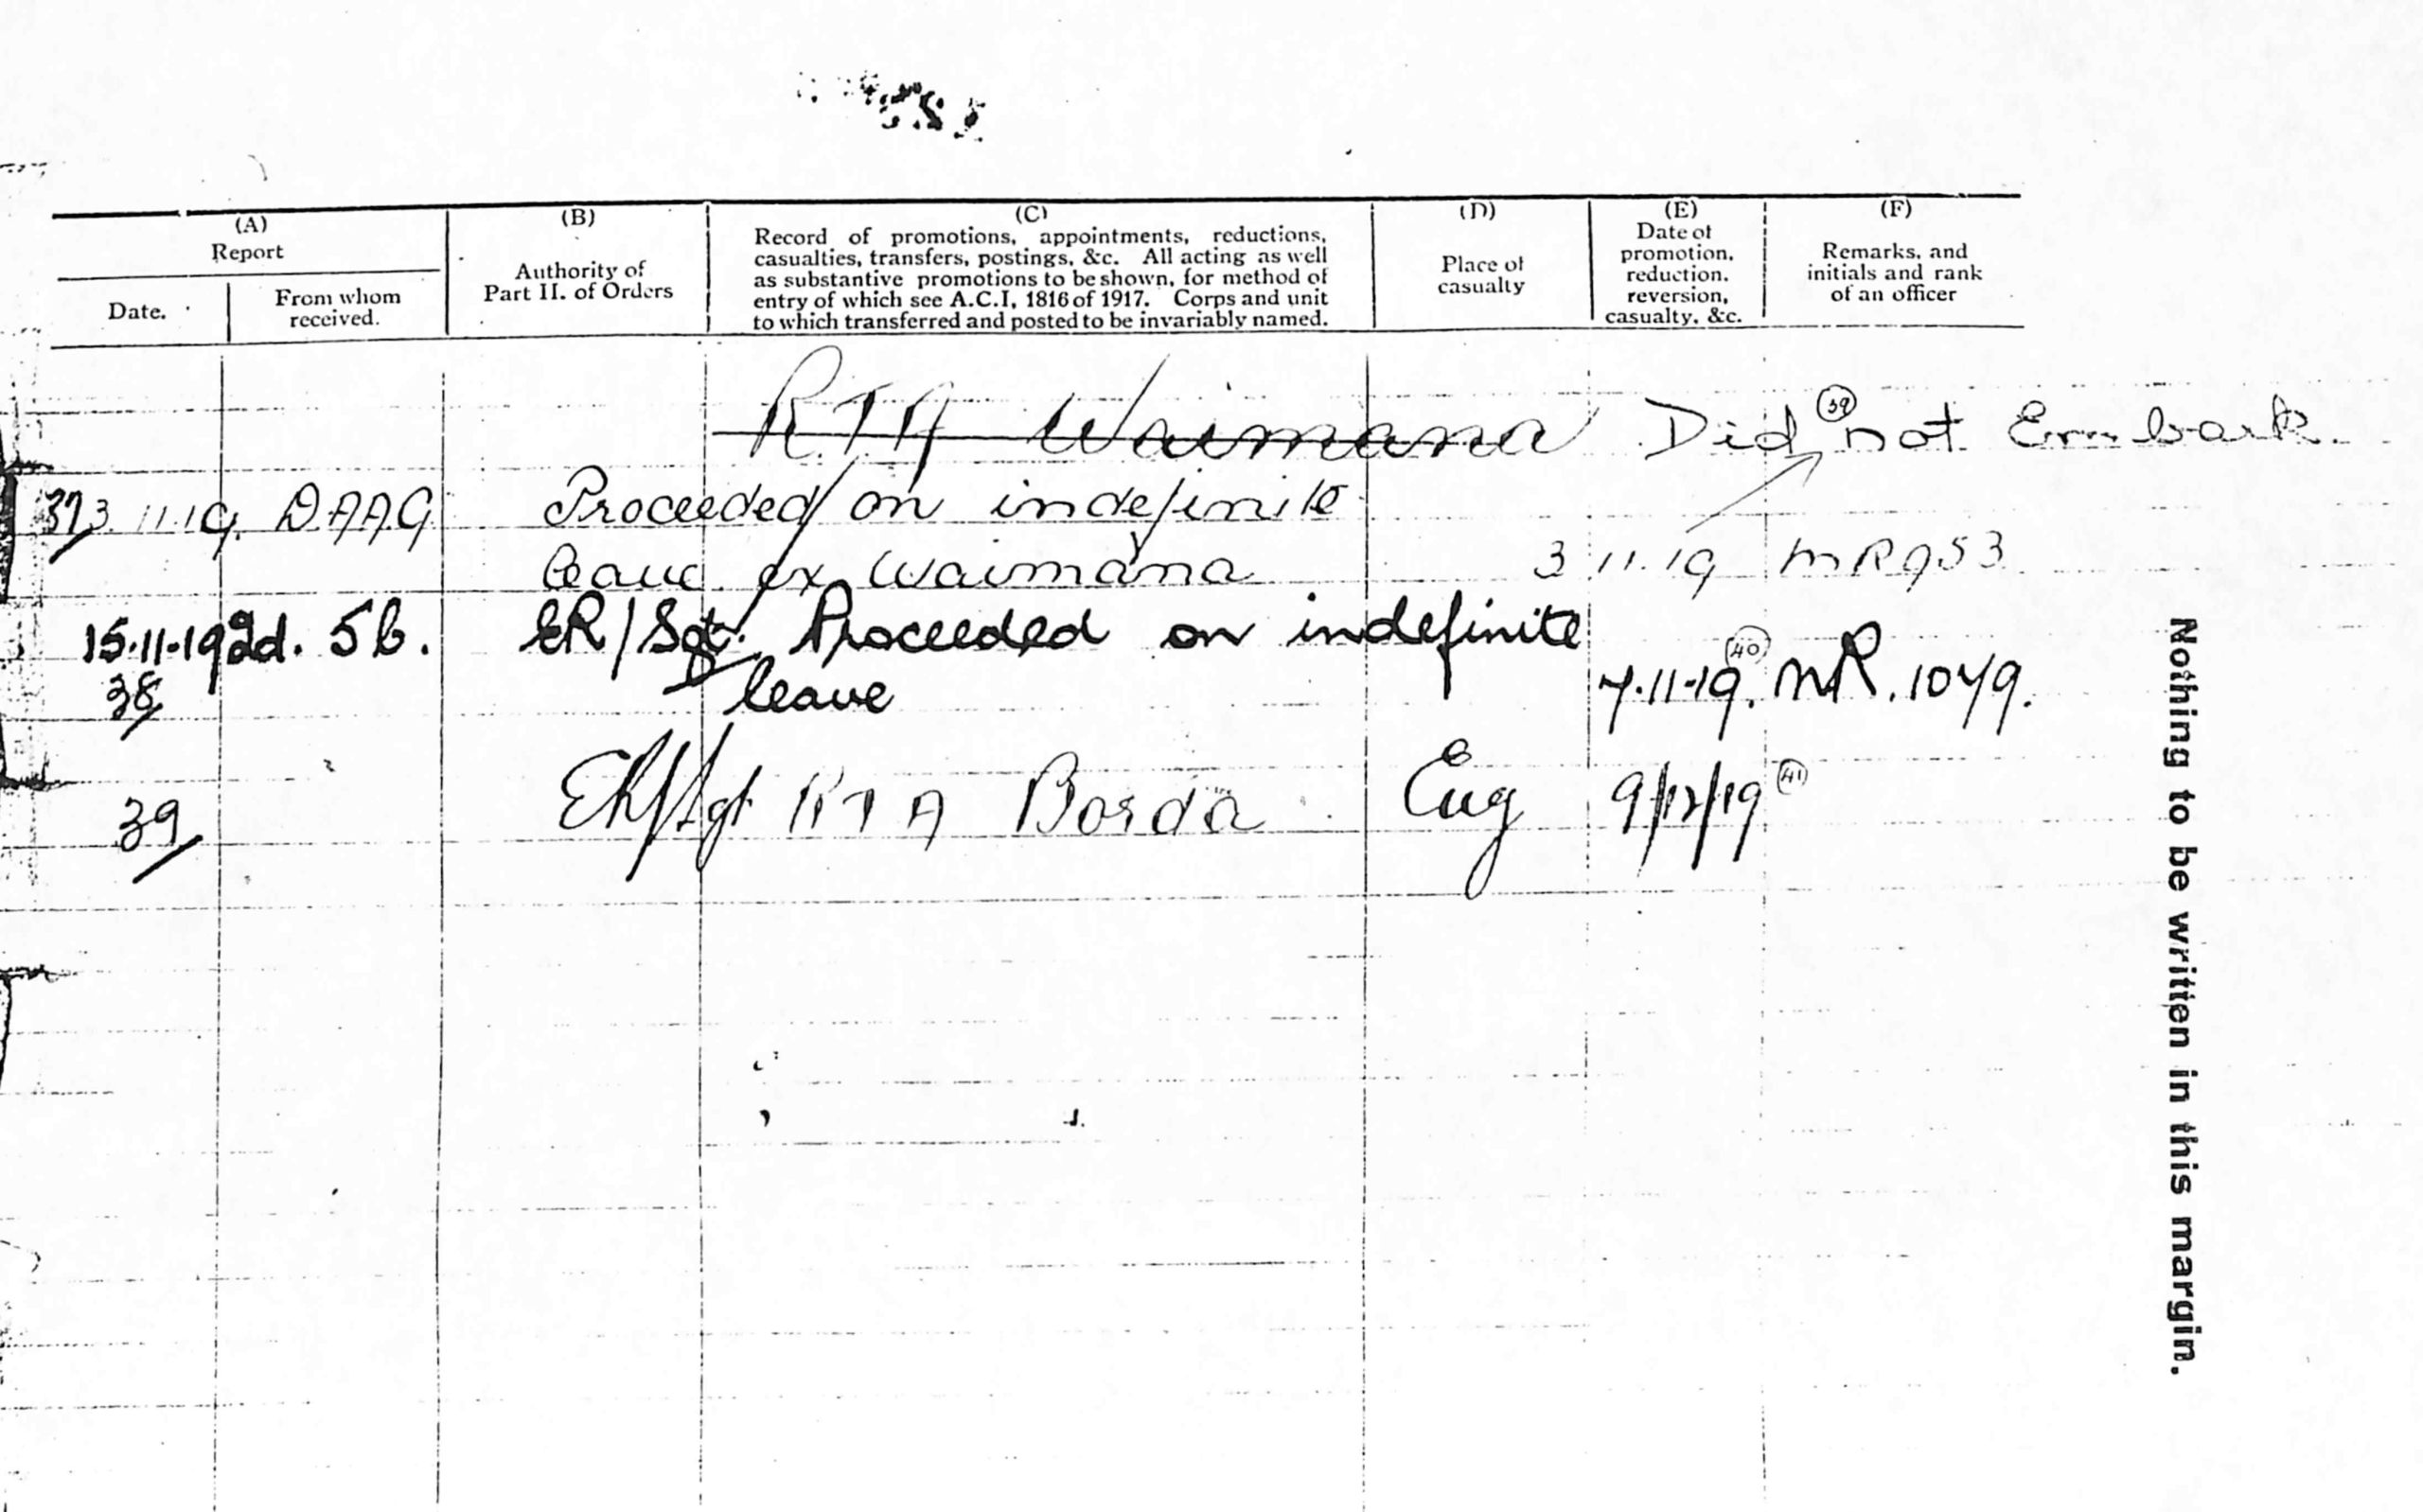 (A)
Report
Date.
From whom
received.
(B)
Authority of
Part II. of Orders
(C)
Record of promotions, appointments, reductions,
casualties, transfers, postings, &c. All acting as well
as substantive promotions to be shown, for method of
entry of which see A.C.I, 1816 of 1917. Corps and unit
to which transferred and posted to be invariably named.
(D)
Place of
casualty
(E)
Date of
promotion,
reduction,
reversion,
casualty, &c.
(F)
Remarks, and
initials and rank
of an officer
R.T.A Waimana Did not Embark.
39
37 3.11.19. D.A.A.G Proceeded on indefinite
leave ex Waimana 3 11.19 MR 953
15.11.19 2d. 5b. ER/Sgt. Proceeded on indefinite
38 leave 7.11.19. MR. 1079.
40
39 ER/Sgt R T A Borda Eng 9/12/19
41
Nothing to be written in this margin.